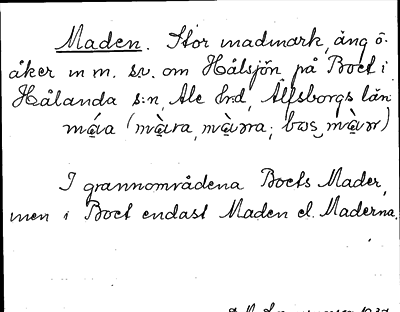 Maden. Stor madmark, äng ö.
åker m m. sv. om Hålsjön på Boet i
Hålanda s:n, Ale hrd, Älfsborgs län
I grannområdena Boets Mader,
men i Boet endast Maden el. Maderna.